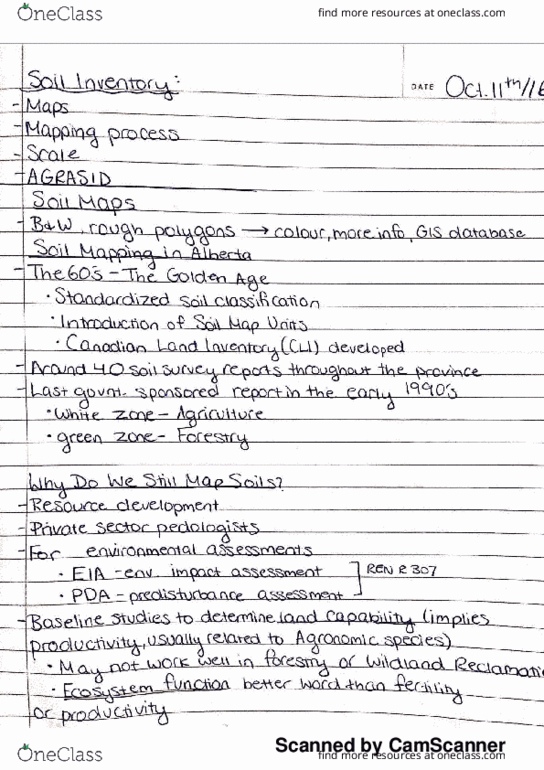 OneClass
find more resources at oneclass.com
Soil Inventory:
DATE Oct. 11th/16
- Maps
- Mapping process
- Scale
- AGRASID
Soil Maps
- B&W, rough polygons → colour, more info, GIS database
Soil Mapping in Alberta
- The 60's - The Golden Age
• Standardized soil classification
• Introduction of Soil Map Units
• Canadian Land Inventory (CLI) developed
- Around 40 soil survey reports throughout the province
- Last govnt. sponsored report in the early 1990's
• White zone - Agriculture
• green zone - Forestry
Why Do We Still Map Soils?
- Resource development
- Private sector pedologists
- For environmental assessments
• EIA - env. impact assessment
REN R 307
• PDA - predisturbance assessment
- Baseline studies to determine land capability (implies
productivity, usually related to Agronomic species)
• May not work well in forestry or wildland Reclamati
• Ecosystem function better word than fertility
or productivity
Scanned by CamScanner
OneClass
find more resources at oneclass.com